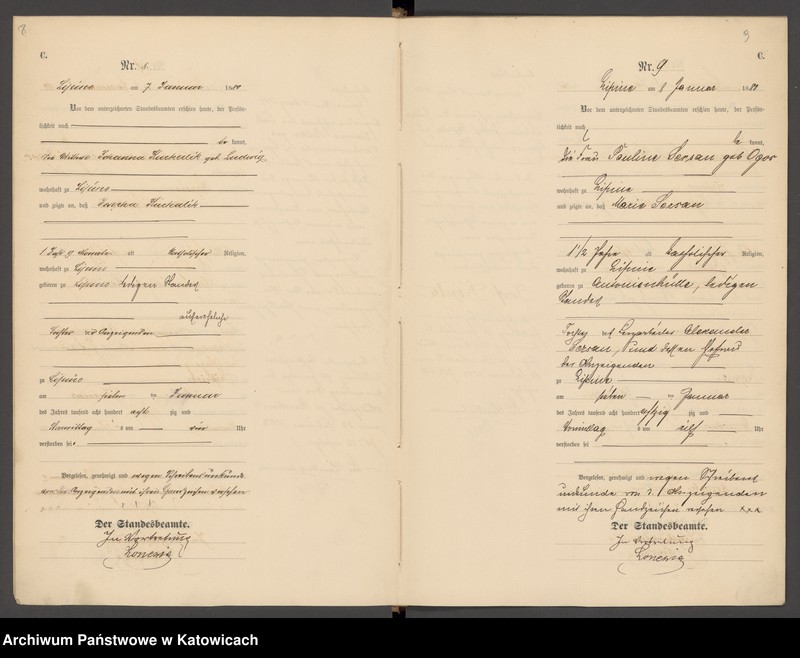 8
C.
Nr. 8.
Lipine am 7. Januar 1880
Vor dem unterzeichneten Standesbeamten erschien heute, der Persön-
lichkeit nach
be kannt,
die Wittwe Johanna Kuchalik geb. Ludwig
wohnhaft zu Lipine
und zeigte an, daß Kuchalik
1 Jahr 9 Monate alt katholischer Religion,
wohnhaft zu Lipine
geboren zu Lipine ledigen Standes
außereheliche
Tochter der Anzeigenden
zu Lipine
am sieben ten Januar
des Jahres tausend acht hundert acht zig und
Vormittag s um vier Uhr
verstorben sei.
Vorgelesen, genehmigt und wegen Schreibensunkunde
von der Anzeigenden mit ihrem Handzeichen versehen
Der Standesbeamte.
In Vertretung
9
C.
Nr. 9
Lipine am 8 Januar 1880
Vor dem unterzeichneten Standesbeamten erschien heute, der Persön-
lichkeit nach
be kannt,
die Frau Pauline geb Ogor
wohnhaft zu Lipine
und zeigte an, daß Marie
1 1/2 Jahre alt katholischer Religion,
wohnhaft zu Lipine
geboren zu Antonienhütte, ledigen
Standes
Tochter des Alexander
und dessen Ehefrau
der Anzeigenden
zu Lipine
am sieben ten Januar
des Jahres tausend acht hundert achtzig zig und
Vormittag s um elf Uhr
verstorben sei
Vorgelesen, genehmigt und wegen Schreibens
unkunde von d. Anzeigenden
mit ihren Handzeichen versehen xxx
Der Standesbeamte.
In Vertretung
Archiwum Państwowe w Katowicach